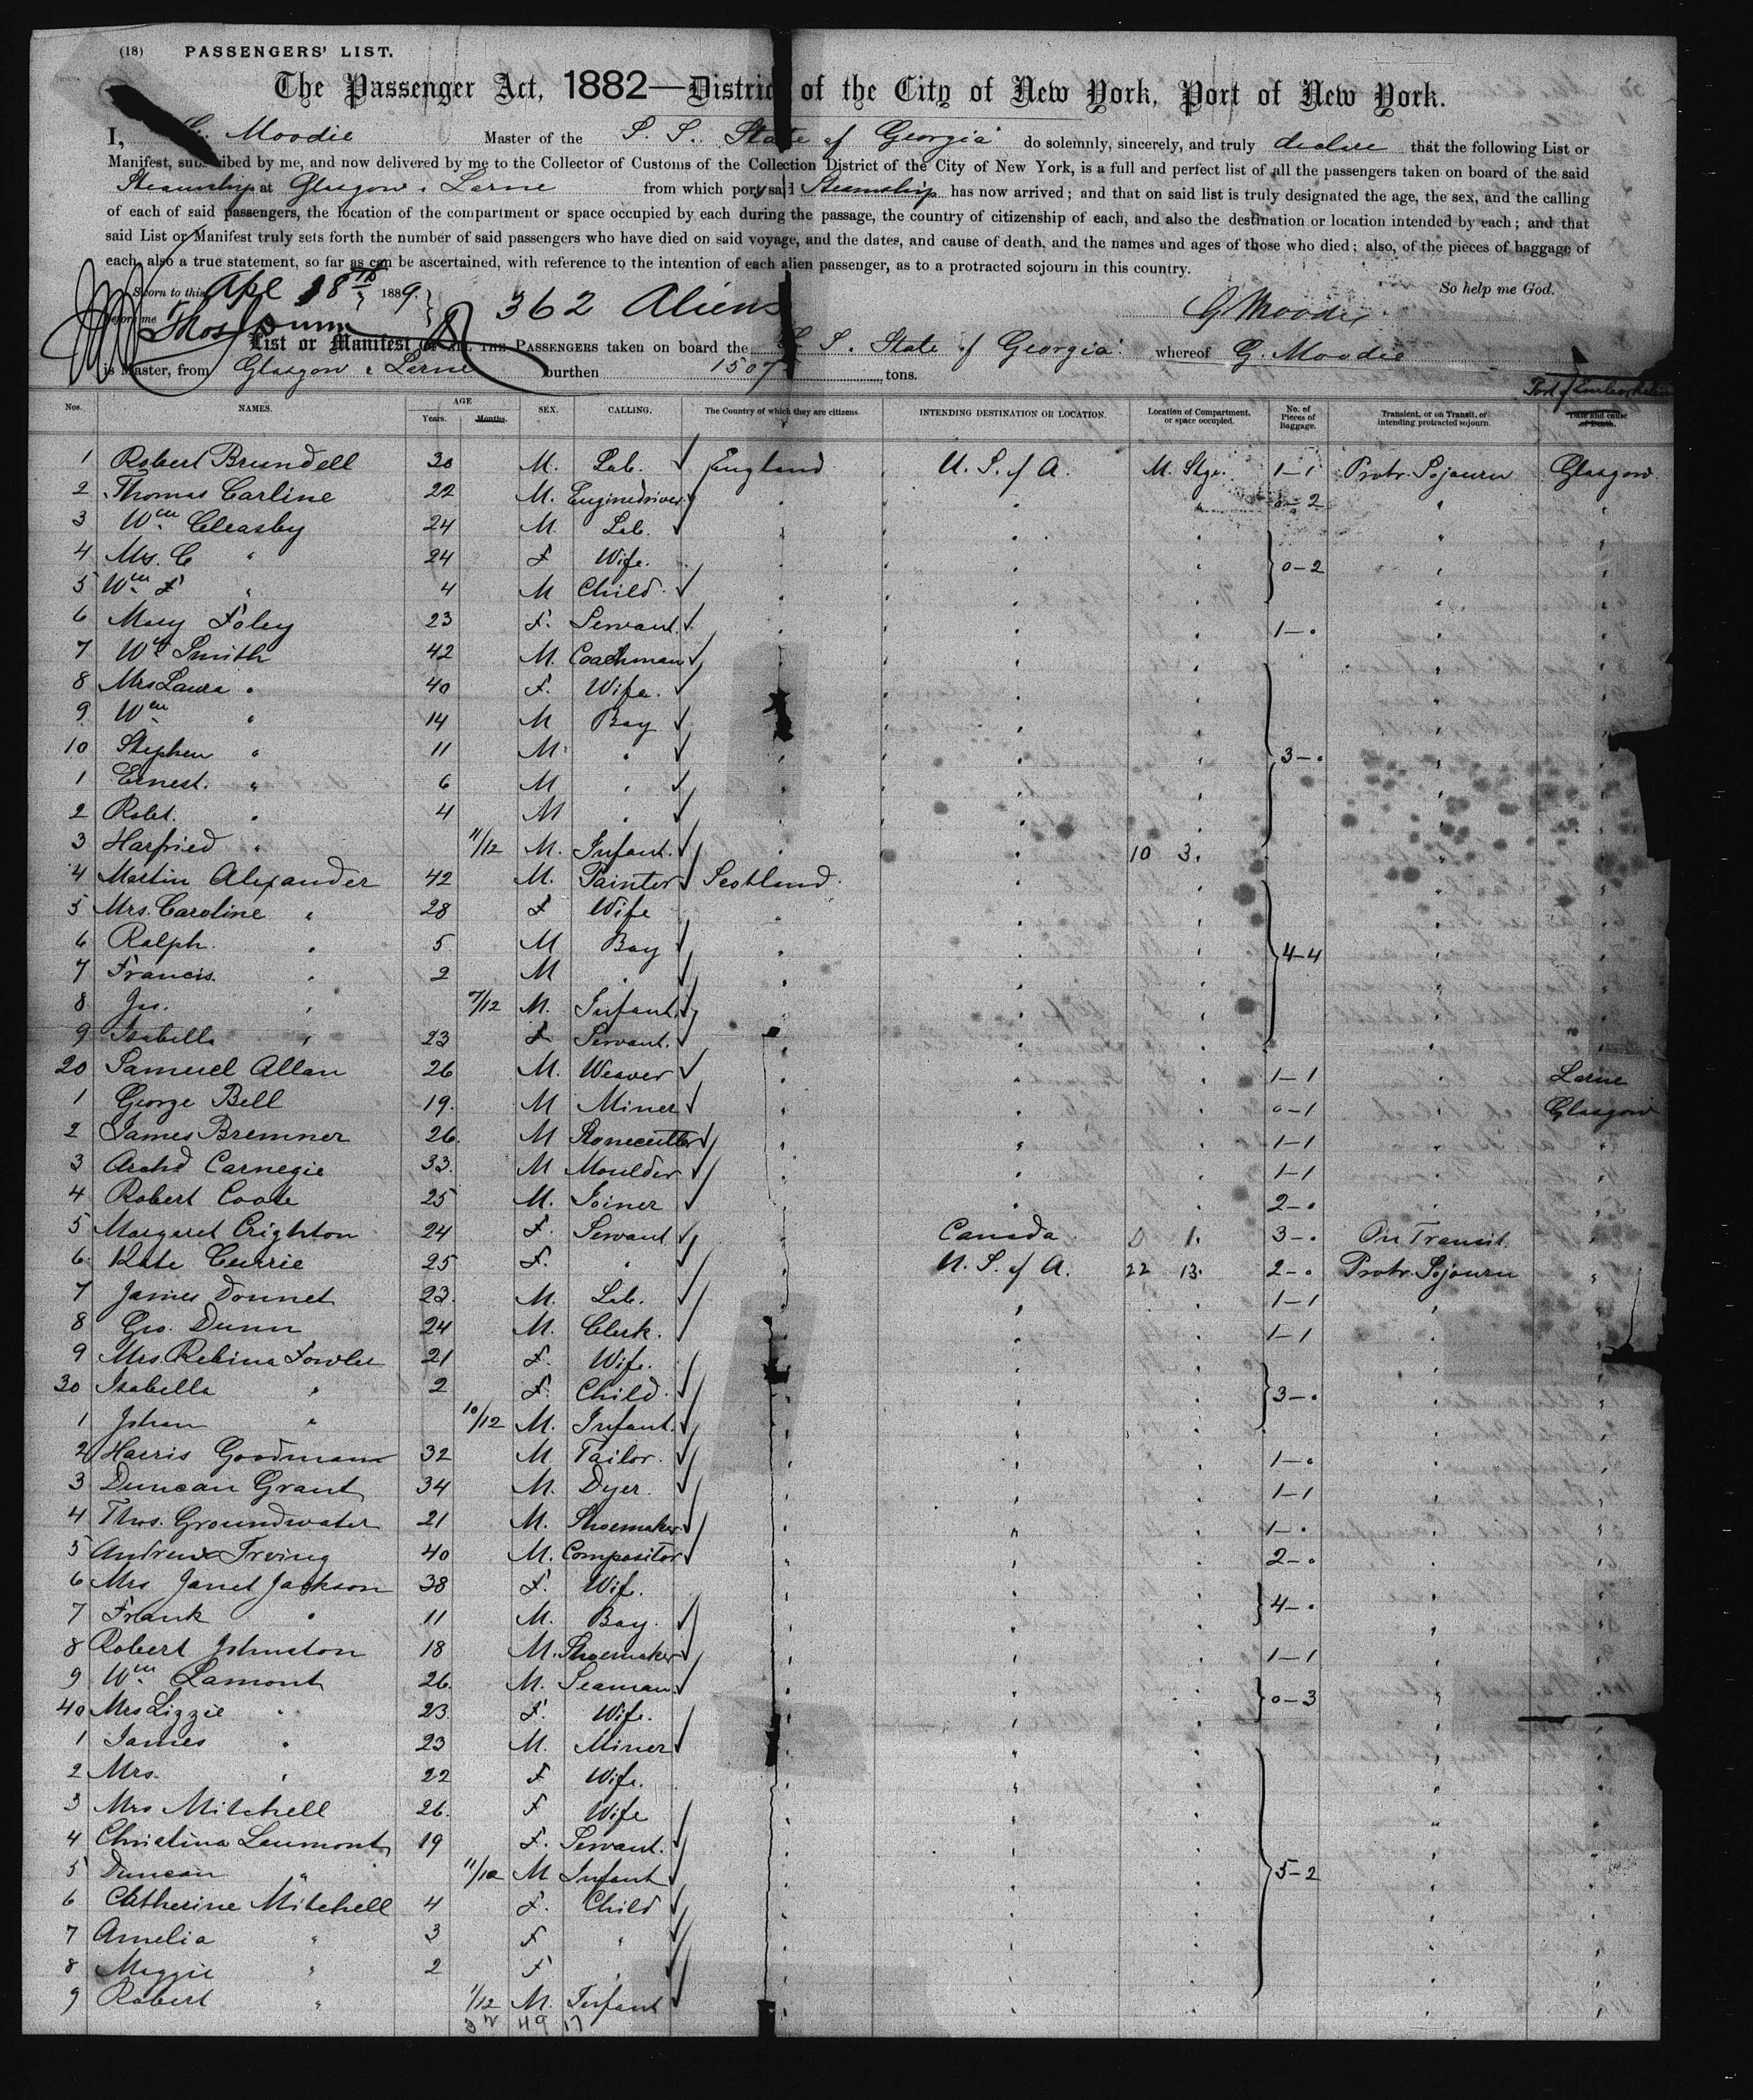 (18) PASSENGERS' LIST.
The Passenger Act, 1882—District of the City of New York, Port of New York.
I, G. Moodie Master of the S. S. State of Georgia do solemnly, sincerely, and truly declare that the following List or
Manifest, subscribed by me, and now delivered by me to the Collector of Customs of the Collection District of the City of New York, is a full and perfect list of all the passengers taken on board of the said
Steamship at Glasgow & Larne from which port said Steamship has now arrived; and that on said list is truly designated the age, the sex, and the calling
of each of said passengers, the location of the compartment or space occupied by each during the passage, the country of citizenship of each, and also the destination or location intended by each; and that
said List or Manifest truly sets forth the number of said passengers who have died on said voyage, and the dates, and cause of death, and the names and ages of those who died; also, of the pieces of baggage of
each, also a true statement, so far as can be ascertained, with reference to the intention of each alien passenger, as to a protracted sojourn in this country.
Sworn to this Apl 18th 1889. So help me God.
before me Thos Dunn 362 Aliens G Moodie
List or Manifest OF ALL THE PASSENGERS taken on board the S. S. State of Georgia whereof G. Moodie
is Master, from Glasgow & Larne burthen 1507 tons.
Port of Embarkation
Nos. NAMES. AGE Years. Months. SEX. CALLING. The Country of which they are citizens. INTENDING DESTINATION OR LOCATION. Location of Compartment, or space occupied. No. of Pieces of Baggage. Transient, or on Transit, or intending protracted sojourn. Date and cause of Death.
1 Robert Brundell 30 M. Lab. ✓ England U. S. of A. M. Stge. 1-1 Protr. Sojourn Glasgow
2 Thomas Carline 22 M. Enginedriver ✓ " " " 0-2 " "
3 Wm Cleasby 24 M Lab. ✓ " " " " "
4 Mrs. C " 24 F Wife. " " " 0-2 " "
5 Wm F " 4 M Child. ✓ " " " " "
6 Mary Foley 23 F. Servant. ✓ " " " 1-. " "
7 Wm Smith 42 M. Coachman ✓ " " " " "
8 Mrs Laura " 40 F. Wife. ✓ " " " " "
9 Wm " 14 M Boy ✓ " " " " "
10 Stephen " 11 M. " ✓ " " " 3-. " "
1 Ernest. " 6 M " ✓ " " " " "
2 Robt. " 4 M " ✓ " " " " "
3 Harfried " 11/12 M. Infant. ✓ " " 10 3. " "
4 Martin Alexander 42 M. Painter ✓ Scotland. " " " "
5 Mrs. Caroline " 28 F Wife " " " " "
6 Ralph. " 5 M Boy ✓ " " " 4-4 " "
7 Francis. " 2 M " ✓ " " " " "
8 Jas. " 7/12 M. Infant. ✓ " " " " "
9 Isabella " 23 F Servant. ✓ " " " " "
20 Samuel Allan 26 M. Weaver ✓ " " " 1-1 " Larne
1 George Bell 19. M Miner ✓ " " " 0-1 " Glasgow
2 James Bremner 26. M Stonecutter ✓ " " " 1-1 " "
3 Archd Carnegie 33. M Moulder ✓ " " " 1-1 " "
4 Robert Coote 25 M. Joiner ✓ " " " 2-. " "
5 Margaret Crighton 24 F. Servant ✓ " Canada. 1. 3-. On Transit. "
6 Kate Currie 25 F. " ✓ " U. S. of A. 22 13. 2-. Protr. Sojourn "
7 James Donnet 23. M. Lab. ✓ " " " 1-1 " "
8 Geo. Dunn 24 M. Clerk. ✓ " " " 1-1 " "
9 Mrs Rebina Fowler 21 F. Wife. ✓ " " " " "
30 Isabella " 2 F. Child. ✓ " " " 3-. " "
1 John " 10/12 M. Infant. ✓ " " " " "
2 Harris Goodman 32 M Tailor. ✓ " " " 1-. " "
3 Duncan Grant 34 M. Dyer. ✓ " " " 1-1 " "
4 Thos. Groundwater 21 M. Shoemaker ✓ " " " 1-. " "
5 Andrew Irving 40 M. Compositor ✓ " " " 2-. " "
6 Mrs Janet Jackson 38 F. Wife. " " " " "
7 Frank " 11 M. Boy. ✓ " " " 4-. " "
8 Robert Johnston 18 M. Shoemaker ✓ " " " 1-1 " "
9 Wm Lamont 26. M. Seaman. ✓ " " " " "
40 Mrs Lizzie " 23. F. Wife. " " " 0-3 " "
1 James " 23 M. Miner ✓ " " " " "
2 Mrs. " 22 F Wife. " " " " "
3 Mrs Mitchell 26. F Wife ✓ " " " " "
4 Christina Leumont 19 F. Servant. ✓ " " " " "
5 Duncan " 11/12 M Infant ✓ " " " 5-2 " "
6 Catherine Mitchell 4 F. Child ✓ " " " " "
7 Amelia " 3 F " ✓ " " " " "
8 Maggie " 2 F " ✓ " " " " "
9 Robert " 1/12 M. Infant ✓ " " " " "
32 49 17